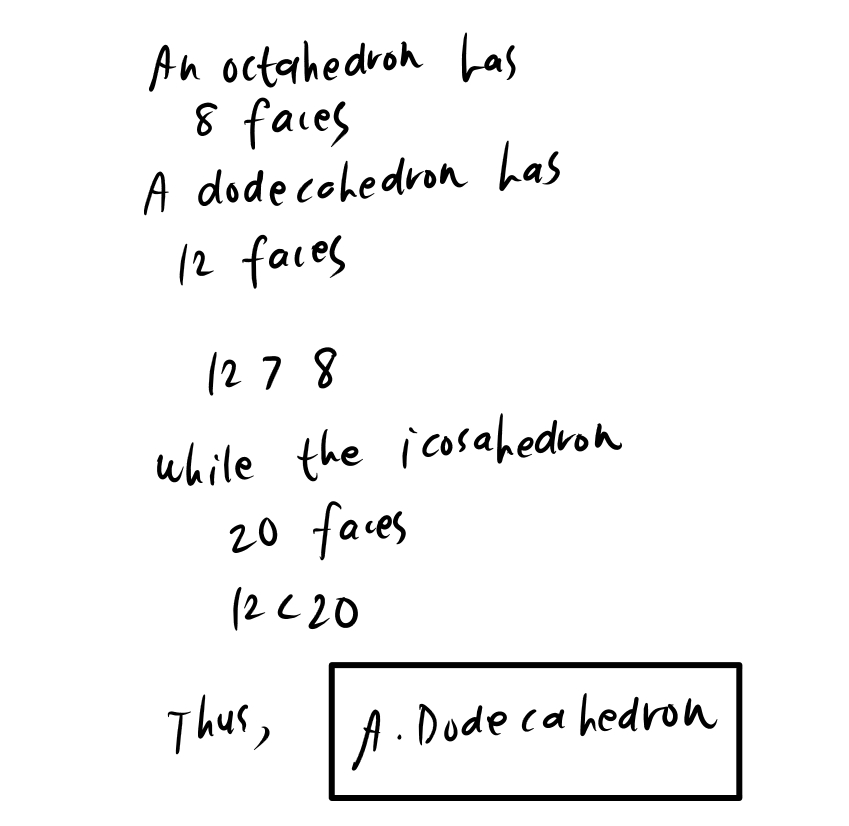 An octahedron has
8 faces
A dodecahedron has
12 faces
12 > 8
while the icosahedron
20 faces
12 < 20
Thus, A. Dodecahedron